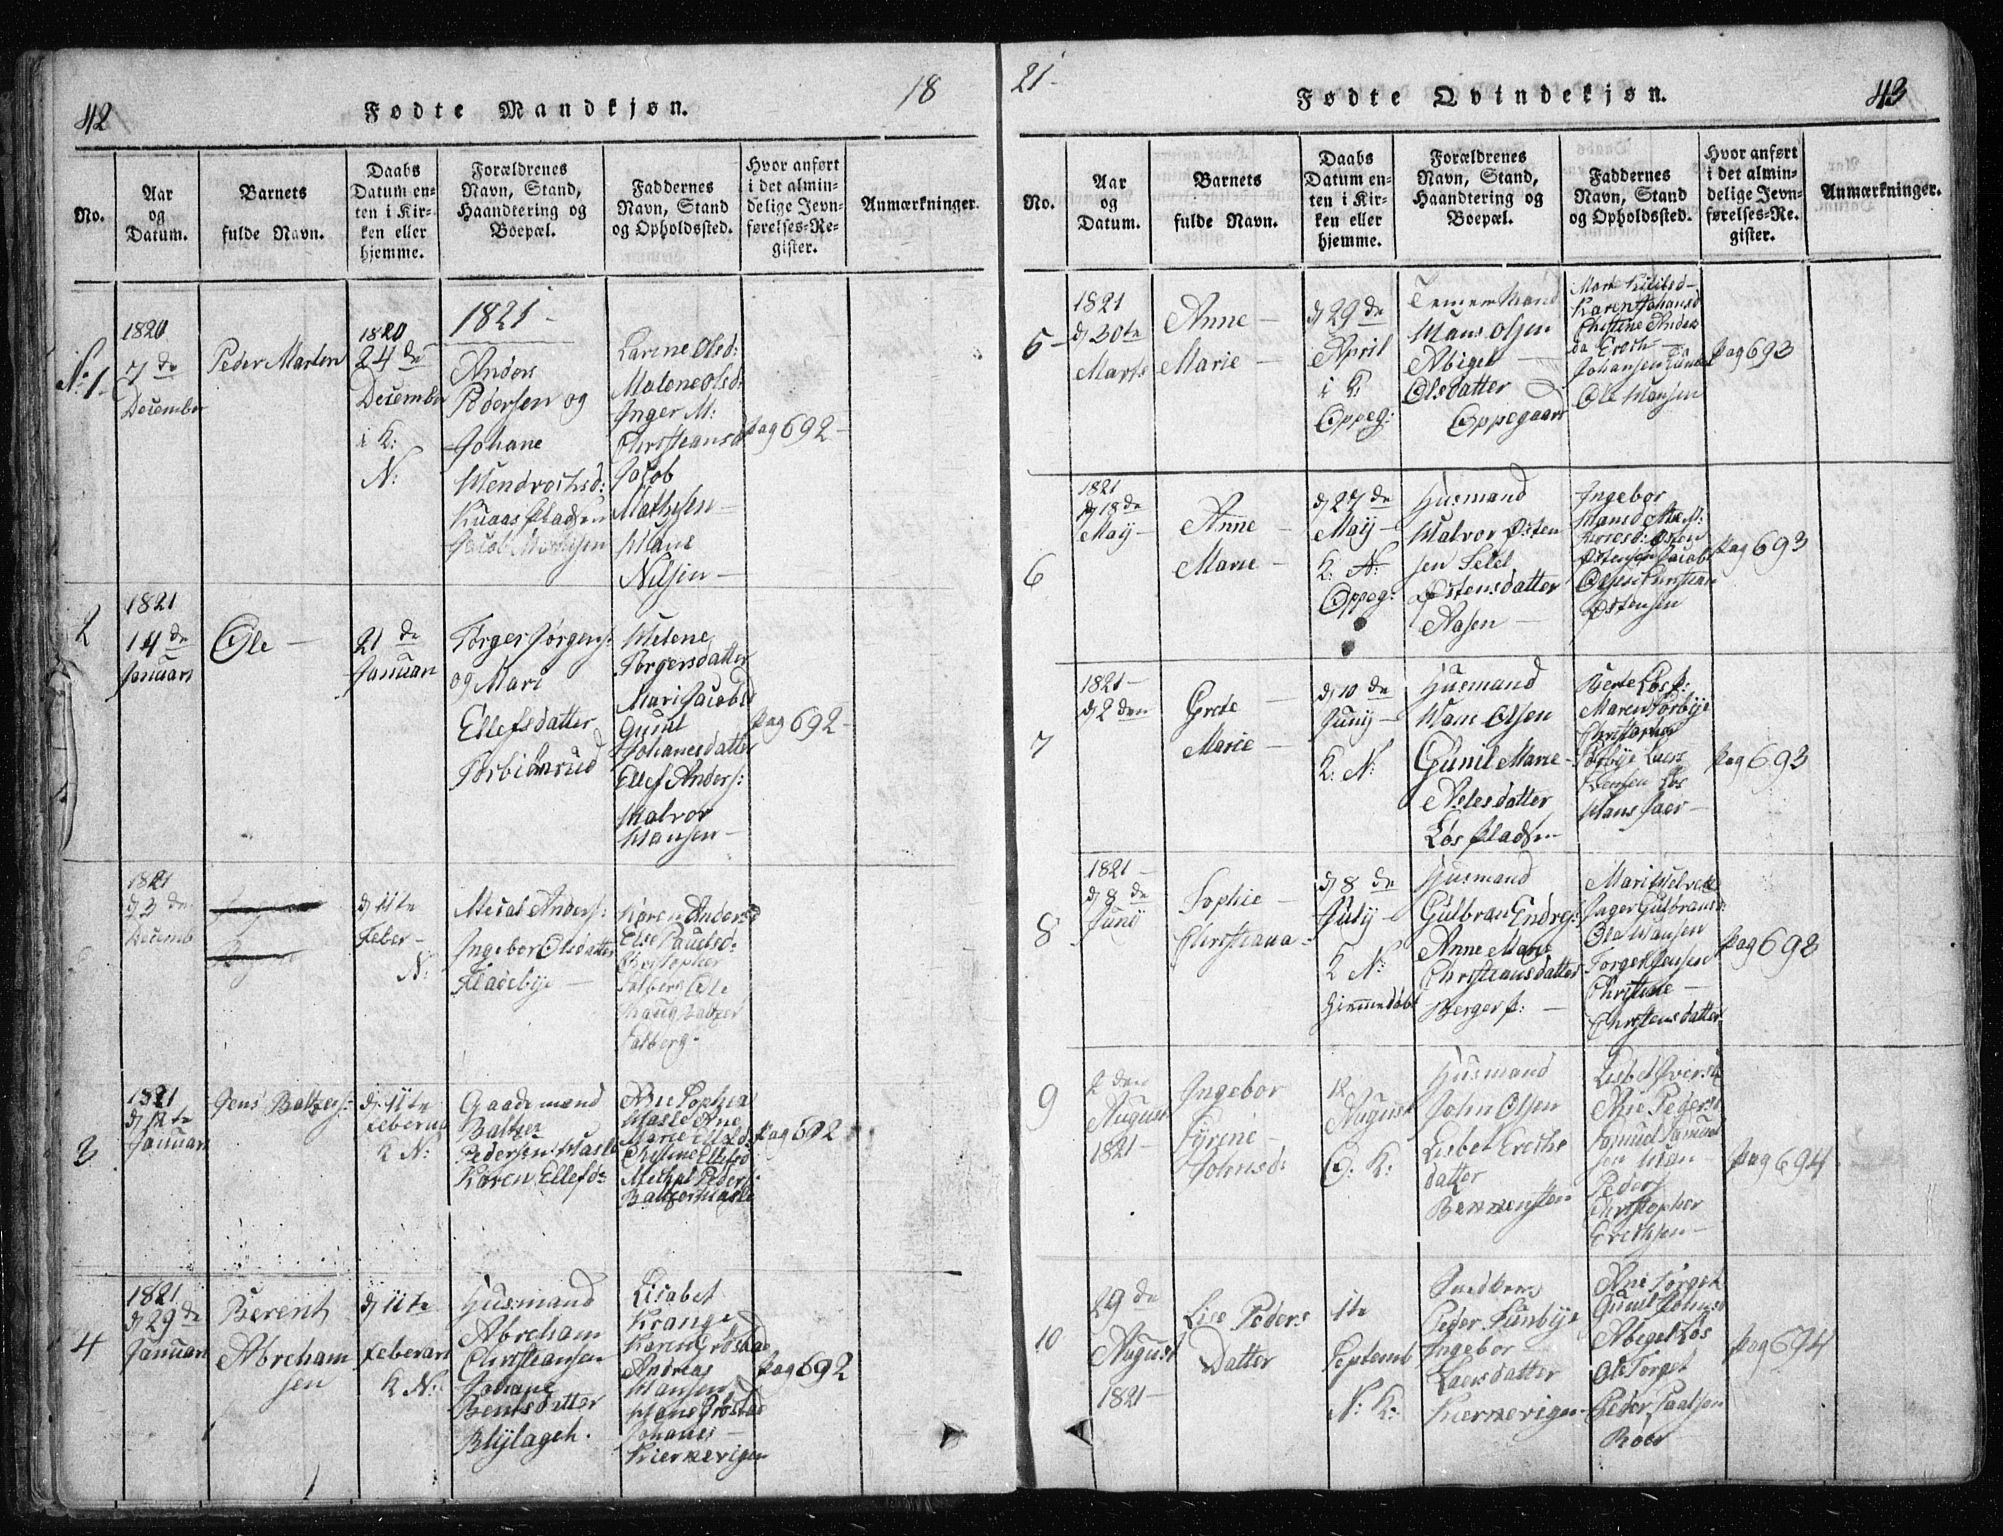 42
Fødte Mandkjøn.
18
No.
Aar
og
Datum.
Barnets
fulde Navn.
Daabs
Datum en-
ten i Kir-
ken eller
hjemme.
Forældrenes
Navn, Stand,
Haandtering og
Boepæl.
Faddernes
Navn, Stand
og Opholdssted.
Hvor anført
i det almin-
delige Jevn-
førelses-Re-
gister.
Anmærkninger.
No. 1.
1820
7 de
December
Peder Marten
1820
24 de
December
i K:
N:
1821
Anders
Pedersen og
Johane
Hendrochsd:
Larine Olsd:
Malene Olsd:
Inger M:
Christiansd
Jacob
Mathisen
Hans
Nilsen
Pag 692
2
1821
14 de
Januari
Ole
21 de
Januari
Torger Jørgens:
og Mari
Ellefsdatter
Helene
Torgersdatter
Mari Jacobsd
Gunil
Johanesdatter
Ellef Anders:
Halvor
Hansen
Pag 692
1821
d 3 de
Decemb
d 11te
Feber
N:
Anders:
Ingebor Olsdatter
Fladebye
Karen Anders
Else Paulsd:
Christopher
Ole
1821
d 12te
Januari
3
Jens Baltzers:
d 11te
Feberua
K N:
Gaardemand
Baltzer
Pedersen Hasle
Karen Ellefsd:
Ane Sophia
Hasle Ane
Marie Ellefsd:
Christine Ellefsd
Michel Peders:
Baltzer Hasle
Pag 692
4
1821
d 29 de
Januari
Berent
Abreham
sen
d 11te
Feberari
K N:
Husmand
Abreham
Christiansen
Johane
Bentsdatter
Blylageh.
Lisabet
Krange
Karen Grøstad
Andreas
Hansen
Hans Grøstad
Johanes
Kiernevigen
Pag 692
21
Fødte Qvindekjøn.
43
No.
Aar
og
Datum.
Barnets
fulde Navn.
Daabs
Datum en-
ten i Kir-
ken eller
hjemme.
Forældrenes
Navn, Stand,
Haandtering og
Boepæl.
Faddernes
Navn, Stand
og Opholdssted.
Hvor anført
i det almin-
delige Jevn-
førelses-Re-
gister.
Anmærkninger.
5
1821
d 30te
Marts
Anne
Marie
d 29 de
April
i K:
Oppeg:
Temermand
Hans Olsen
Abigel
Olsdatter
Oppegaard
Karen Johansd
Christine Anders
Johansen
Ole Hansen
Pag 693
6
1821
d 18 de
May
Anne
Marie
d 27 de
May
K: N:
Oppeg:
Husmand
Halvor Østen
sen Selel
Østensdatter
Aasen
Ingebor
Østen
Østensen Jacob
Olsen Christian
Østensen
Pag 693
7
1821
d 2 den
Grete
Marie
d 10 de
Juny
K: N:
Husmand
Hans Olsen
Gunil Marie
Aslesdatter
Løs pladsen
Berte Løs p:
Maren Sørbye
Christopher
Sørbye Lars
Jensen Løs
Hans Jaer
Pag 693
8
1821
d 8 de
Juny
Sophie
Christiana
d 8 de
July
K N:
Husmand
Gulbran Endres:
Anne Marie
Christiansdatter
Berger p:
Inger Gulbransd:
Ole Hansen
Torger Jensen
Christine
Christensdatter
Pag 693
9
2 den
August
1821
Ingebor
Syrene
Johnsd:
12
August
O. K:
Husmand
John Olsen
Lisbet Erichs
datter
Lisbet Iversd
Ane Pedersd
Samuel Samuel
sen
Peders
Christopher
Erichsen
Pag 694
10
29 de
August
1821
Lise Peders
Datter
1te
Septemb
N: K:
Peder Sunbye
Ingebor
Larsdatter
Kiernevigen
Ane Torget
Gunil Johnsd
Abigel Løs
Ole Torget
Peder Paalsen
Roer
Pag 694